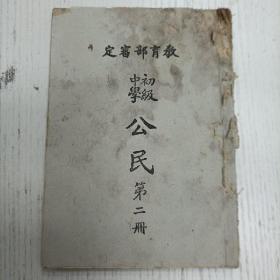 教育部審定
初級
中學
公民
第二冊